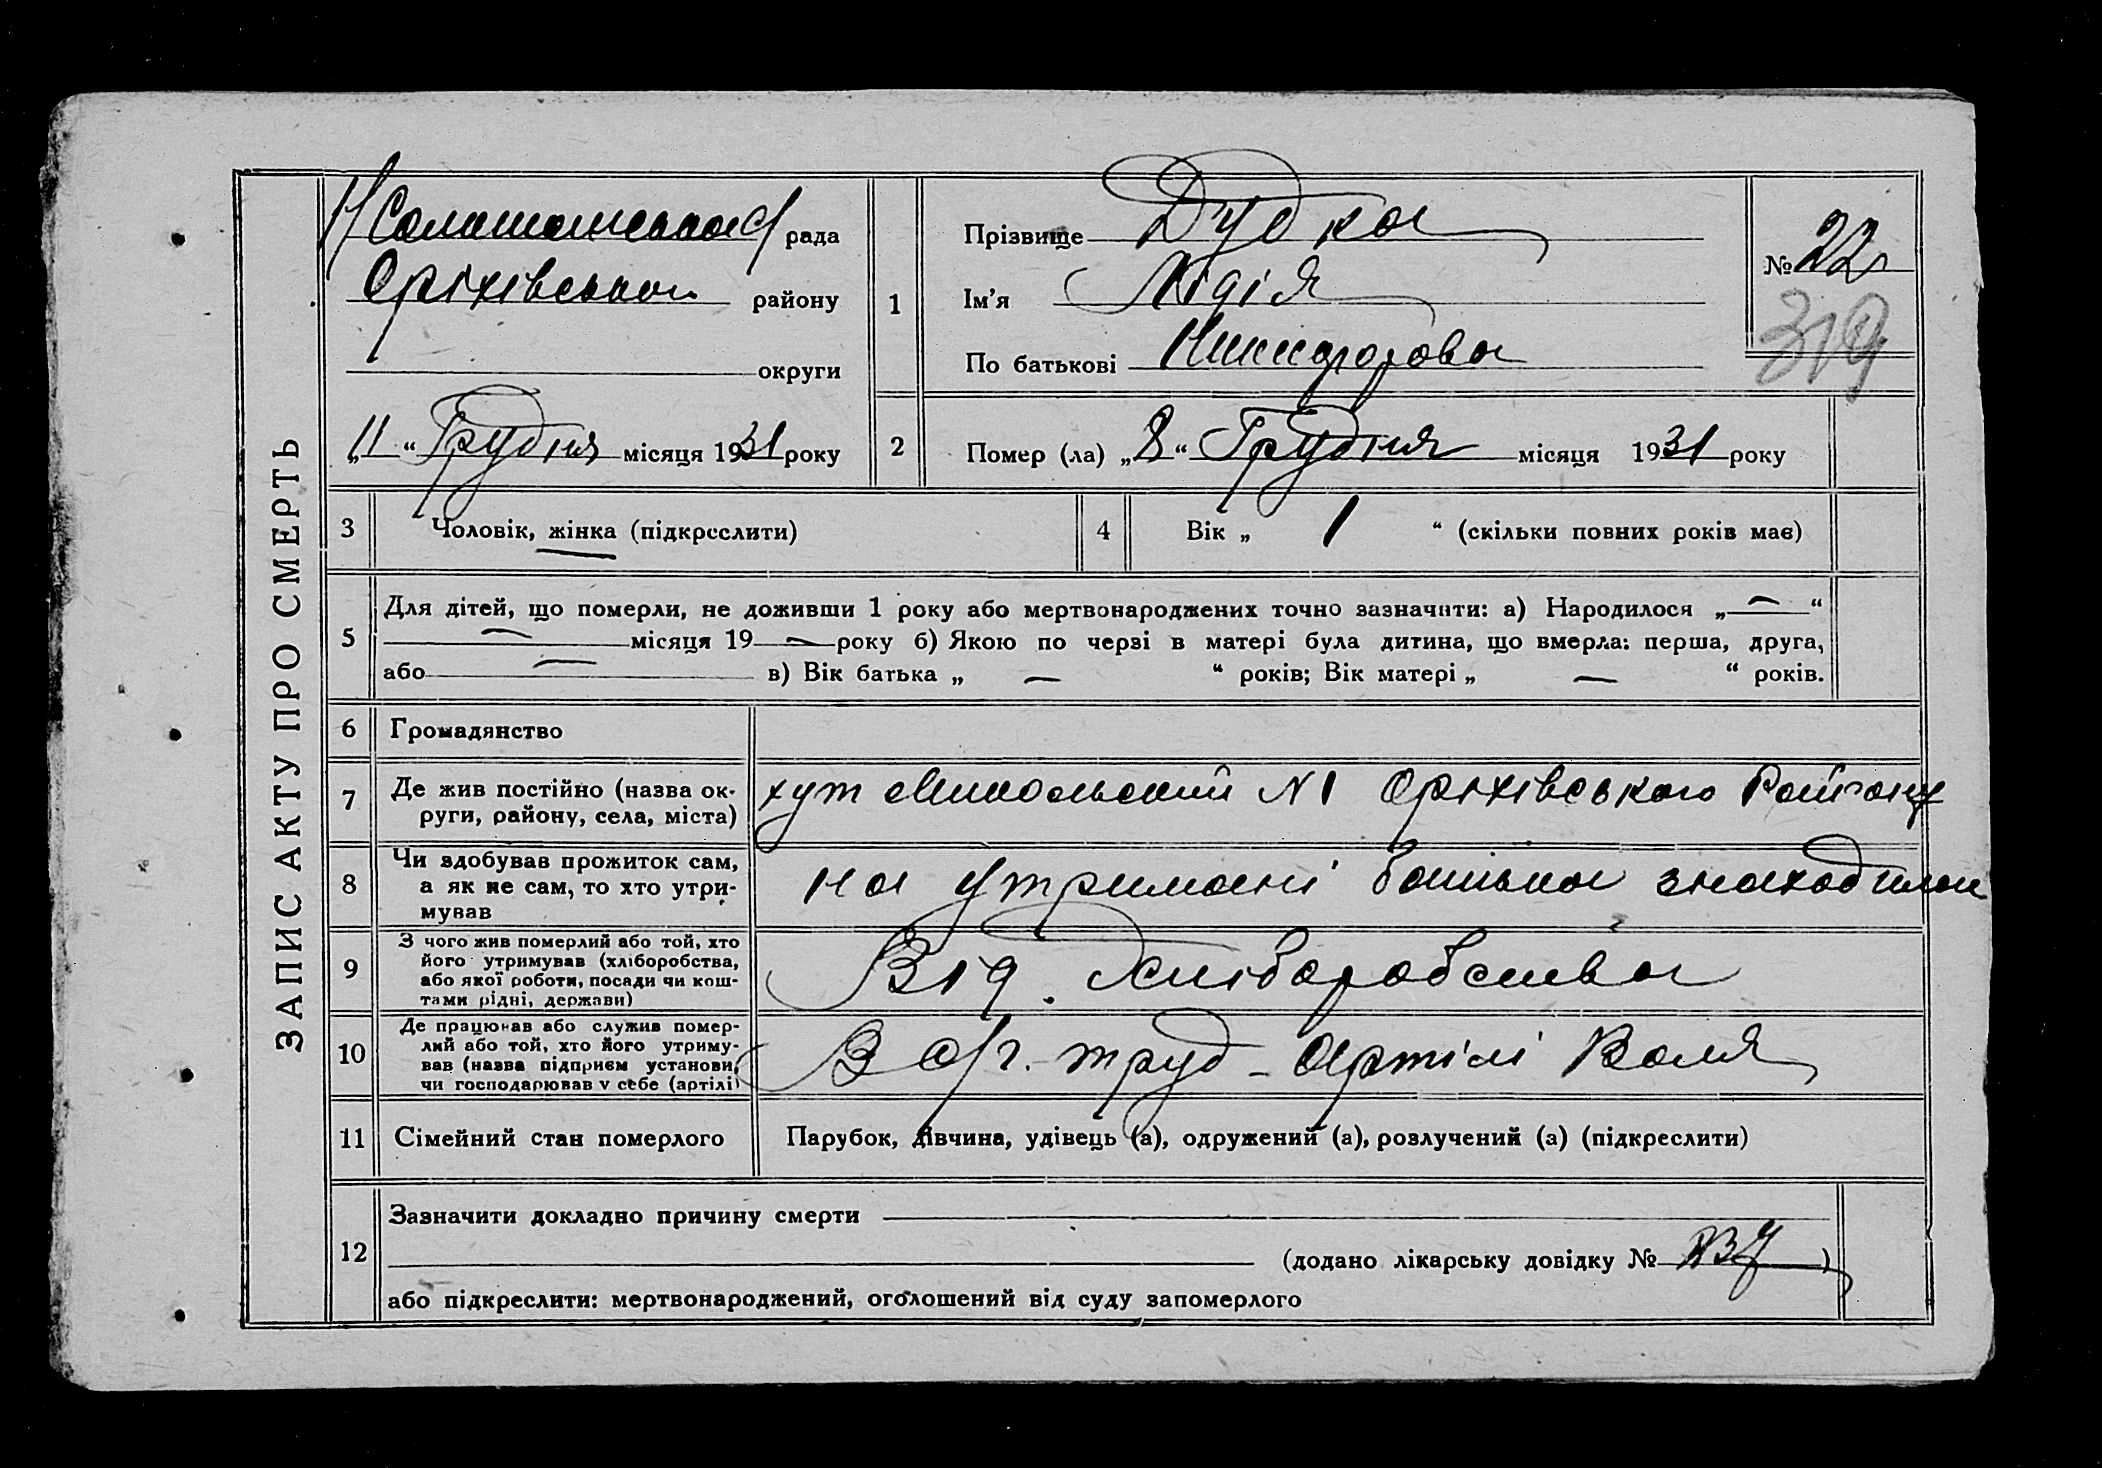 ЗАПИС АКТУ ПРО СМЕРТЬ
рада
Оріхівського району
округи
„11“ Грудня місяця 1931 року
1
Прізвище Дудка
Ім'я Лідія
По батькові Никифорова
№ 22
319
2
Помер (ла) „8“ Грудня місяця 1931 року
3 Чоловік, жінка (підкреслити)
4 Вік „ 1 “ (скільки повних років має)
5 Для дітей, що померли, не доживши 1 року або мертвонароджених точно зазначити: а) Народилося „—“
— місяця 19 — року б) Якою по черзі в матері була дитина, що вмерла: перша, друга,
або — в) Вік батька „ — “ років; Вік матері „ — “ років.
6 Громадянство
7 Де жив постійно (назва ок-
руги, району, села, міста)
хут Микольський N1 Оріхівського Району
8 Чи здобував прожиток сам,
а як не сам, то хто утри-
мував
на утримані батька знаходилась
9 З чого жив померлий або той, хто
його утримував (хліборобства,
або якої роботи, посади чи кош-
тами рідні, держави)
Від Хліборобства
10 Де працював або служив помер-
лий або той, хто його утриму-
вав (назва підприєм установи,
чи господарював у себе (артілі)
В с/г. труд - Артілі Воля
11 Сімейний стан померлого
Парубок, дівчина, удівець (а), одружений (а), розлучений (а) (підкреслити)
12 Зазначити докладно причину смерти
(додано лікарську довідку № )
або підкреслити: мертвонароджений, оголошений від суду запомерлого